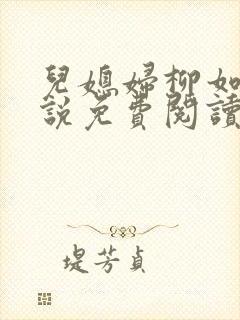 兒媳婦柳如
說免費閱讀
堤芳貞